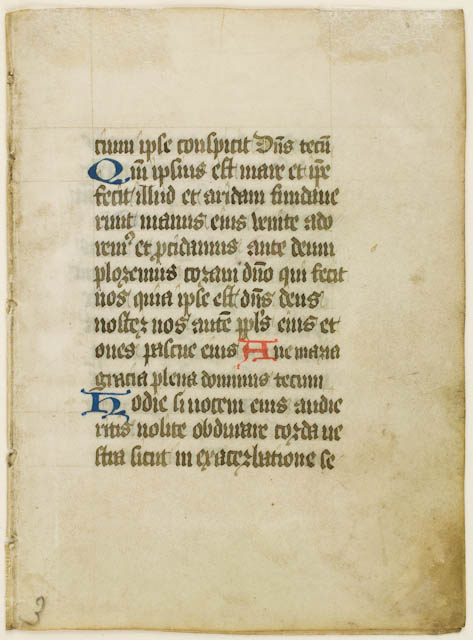 tium ipse conspicit Dn̄s tecū
Qm̄ ipsius est mare et ip̄e
fecit illud et aridam fundaue
runt manus eius Venite ado
remꝰ et p̱cidamus ante deum
ploremus coram dn̄o qui fecit
nos quia ipse est dn̄s deus
noster nos autē pp̄ls eius et
oues pascue eius Aue maria
gracia plena dominus tecum
Hodie si uocem eius audie
ritis nolite obdurare corda ue
stra sicut in exacerbatione se
3